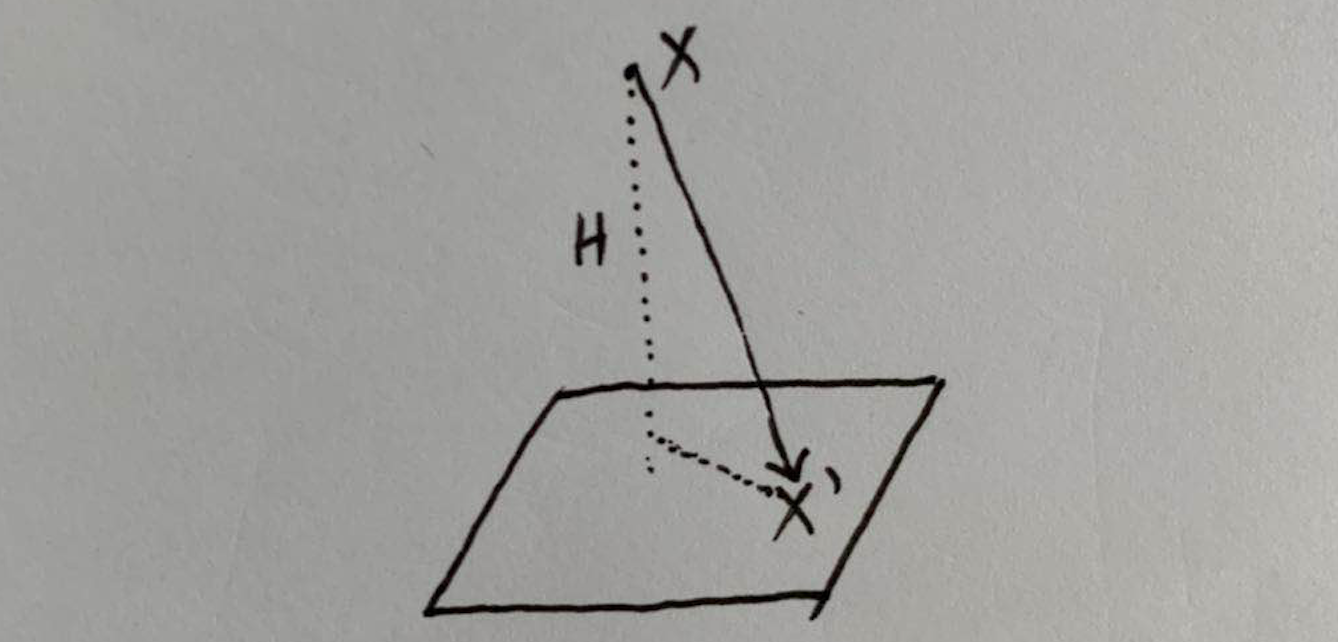 X
H
X'